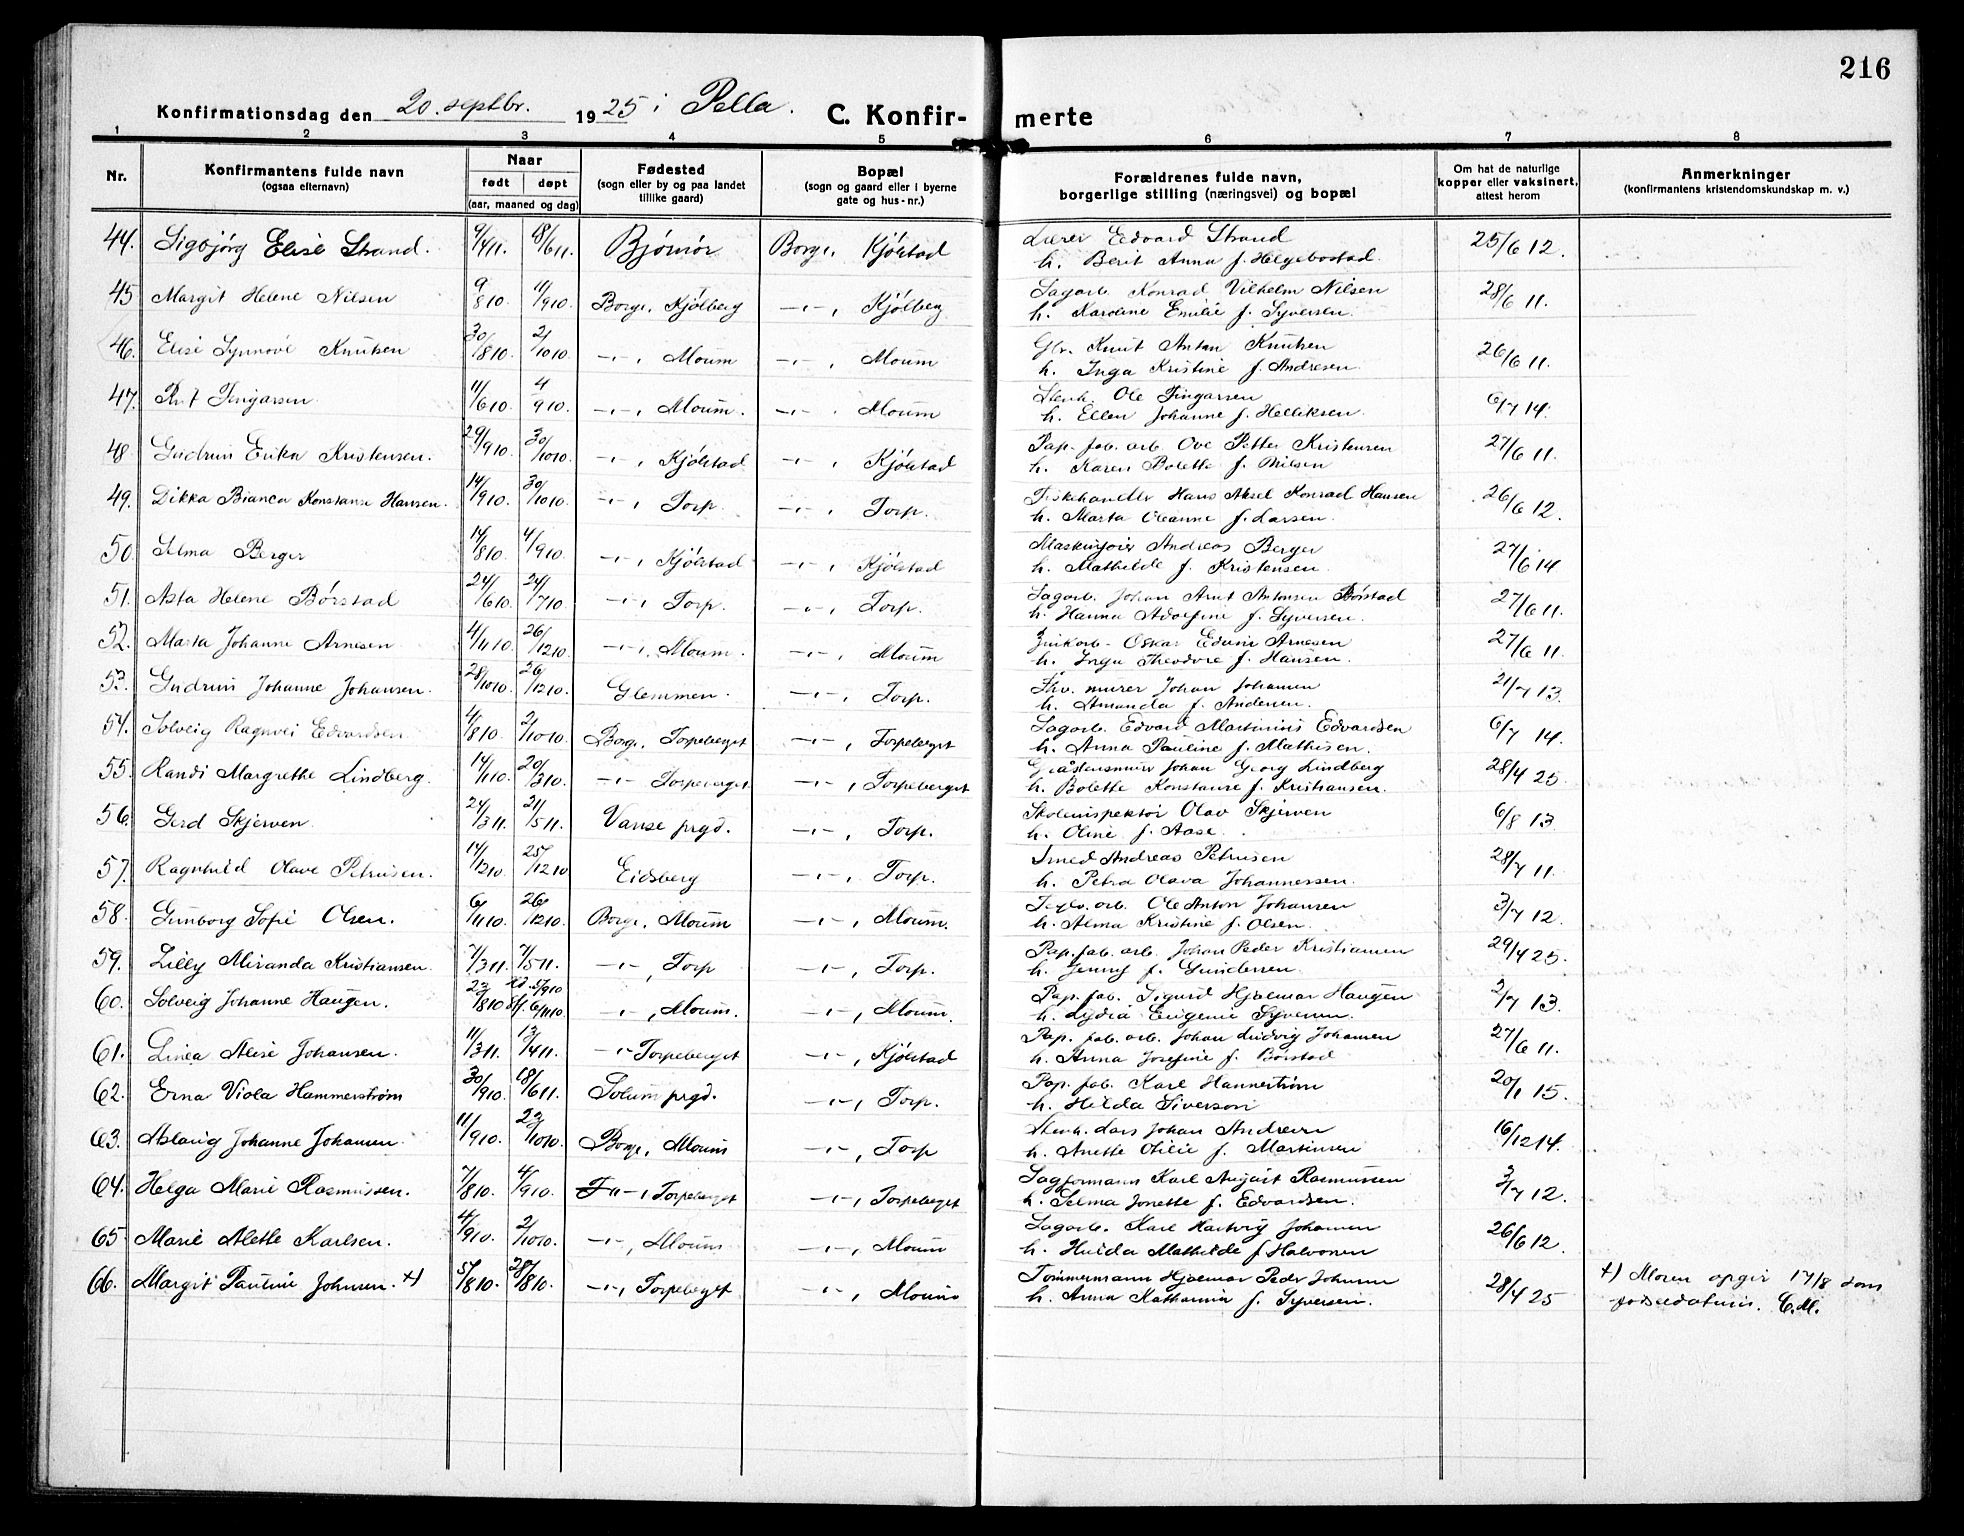 216
Konfirmationsdag den 20. septbr. 1925 i Pella. C. Konfir- merte
1 2 3 4 5 6 7 8
Nr. Konfirmantens fulde navn (ogsaa efternavn) Naar født døpt (aar, maaned og dag) Fødested (sogn eller by og paa landet tillike gaard) Bopæl (sogn og gaard eller i byerne gate og hus-nr.) Forældrenes fulde navn, borgerlige stilling (næringsvei) og bopæl Om hat de naturlige kopper eller vaksinert, attest herom Anmerkninger (konfirmantens kristendomskundskap m. v.)
44. Sigbjørg Elise Strand. 9/4 11. 18/6 11. Bjørnør Borge, Kjølstad Lærer Edvard Strand 25/6 12.
h. Berit Anna f. Helgebostad.
45 Margit Helene Nilsen 9/8 10. 11/9 10. Borge, Kjølberg —"—, Kjølberg Sagarb. Konrad Vilhelm Nilsen 28/6 11.
h. Karoline Emilie f. Syversen.
46. Elise Synnøve Knutsen 30/8 10. 2/10 10. —"—, Moum —"—, Moum Gbr. Knut Anton Knutsen 26/6 11.
h. Inga Kristine f. Andresen.
47. Rut Fingarsen. 11/6 10. 4/9 10. —"—, Moum. —"—, Moum Stenh. Ole Fingarsen 6/7 14.
h. Ellen Johanne f. Helliksen.
48 Gudrun Erika Kristensen. 29/9 10. 30/10 10. —"—, Kjølstad —"—, Kjølstad Pap. fab. arb. Ove Petter Kristensen 27/6 11.
h. Karen Bolette f. Nilsen
49. Dikka Bianca Konstanse Hansen. 14/9 10. 30/10 10. —"—, Torp. —"—, Torp. Fiskehandler Hans Aksel Konrad Hansen 26/6 12.
h. Marta Oleanne f. Larsen.
50. Selma Berger 14/8 10. 4/9 10. —"—, Kjølstad —"—, Kjølstad Maskinfører Andreas Berger 27/6 14
h. Mathilde f. Kristensen.
51. Asta Helene Børstad 24/6 10. 24/7 10. —"—, Torp. —"—, Torp. Sagarb. Johan Arnt Antonsen Børstad 27/6 11.
h. Hanna Adolfine f. Syversen.
52. Marta Johanne Arnesen 4/11 10. 26/12 10. —"—, Moum. —"—, Moum Oskar Edvin Arnesen 27/6 11.
h. Inga Theodore f. Hansen.
53. Gudrun Johanne Johansen. 28/10 10. 26/12 10. Glemmen. —"—, Torp. murer Johan Johansen 21/7 13.
h. Amanda f. Andersen.
54. Solveig Ragnvei Edvardsen 4/8 10. 2/10 10. Borge, Torpeberget —"—, Torpeberget Sagarb. Edvard Martinius Edvardsen 6/7 14.
h. Anna Pauline f. Mathisen.
55. Randi Margrethe Lindberg. 14/1 10. 20/3 10. —"— Torpeberget —"—, Torpeberget Gråstensmurer Johan Georg Lindberg 28/4 25.
h. Bolette Konstanse f. Kristiansen.
56. Gerd Skjerven. 24/3 11. 21/5 11. Vanse prgd. —"—, Torp. Skoleinspektør Olav Skjerven 6/8 13.
h. Oline f. Aase.
57. Ragnhild Olave Petrusen. 14/12 10. 25/12 10 Eidsberg —"—, Torp. Smed Andreas Petrusen 28/7 11.
h. Petra Olava Johannessen.
58. Gunborg Sofie Olsen. 6/11 10. 26/12 10. Borge, Moum —"—, Moum. Teglv. arb. Ole Anton Johansen 3/7 12.
h. Alma Kristine f. Olsen.
59. Lilly Miranda Kristiansen. 7/3 11. 7/5 11. —"—, Torp —"—, Torp. Pap. fab. arb. Johan Peder Kristiansen 29/4 25.
h. Jenny f. Gundersen.
60. Solveig Johanne Haugen. 23/8 10 5/9 10 6/11 10. —"—, Moum. —"—, Moum. Pap. fab. Sigurd Hjalmar Haugen 2/7 13.
h. Lydia Eugenie Syversen.
61. Linea Alise Johansen. 11/3 11. 13/4 11. —"— Torpeberget —"—, Kjølstad Pap. fab. arb. Johan Ludvig Johansen 27/6 11.
h. Anna Josefine f. Børstad
62. Erna Viola Hammerstrøm 30/9 10. 18/6 11. Solum prgd. —"—, Torp. Pap. fab. Karl Hammerstrøm 20/1 15.
h. Hilda Siverson
63. Aslaug Johanne Johansen. 11/9 10. 23/10 10. Borge, Moum —"—, Torp Stenh. Lars Johan Andersen 16/12 14.
h. Anette Otilie f. Martinsen
64. Helga Marie Rasmussen. 7/8 10. 4/9 10. —"—, Torpeberget —"—, Torpeberget Sagformann Karl August Rasmussen 3/7 12.
h. Selma Jonette f. Edvardsen.
65 Marie Alette Karlsen. 4/9 10. 2/10 10. —"—, Moum —"—, Moum Sagarb. Karl Hartvig Johansen 26/6 12.
h. Hulda Mathilde f. Halvorsen
66. Margit Pauline Johnsen. +) 5/8 10. 28/8 10. —"—, Torpeberget —"—, Moum Tømmermann Hjalmar Peder Johnsen 28/4 25 +) Moren opgir 17/8 som
h. Anna Katharina f. Syversen. fødselsdatum. C.M.